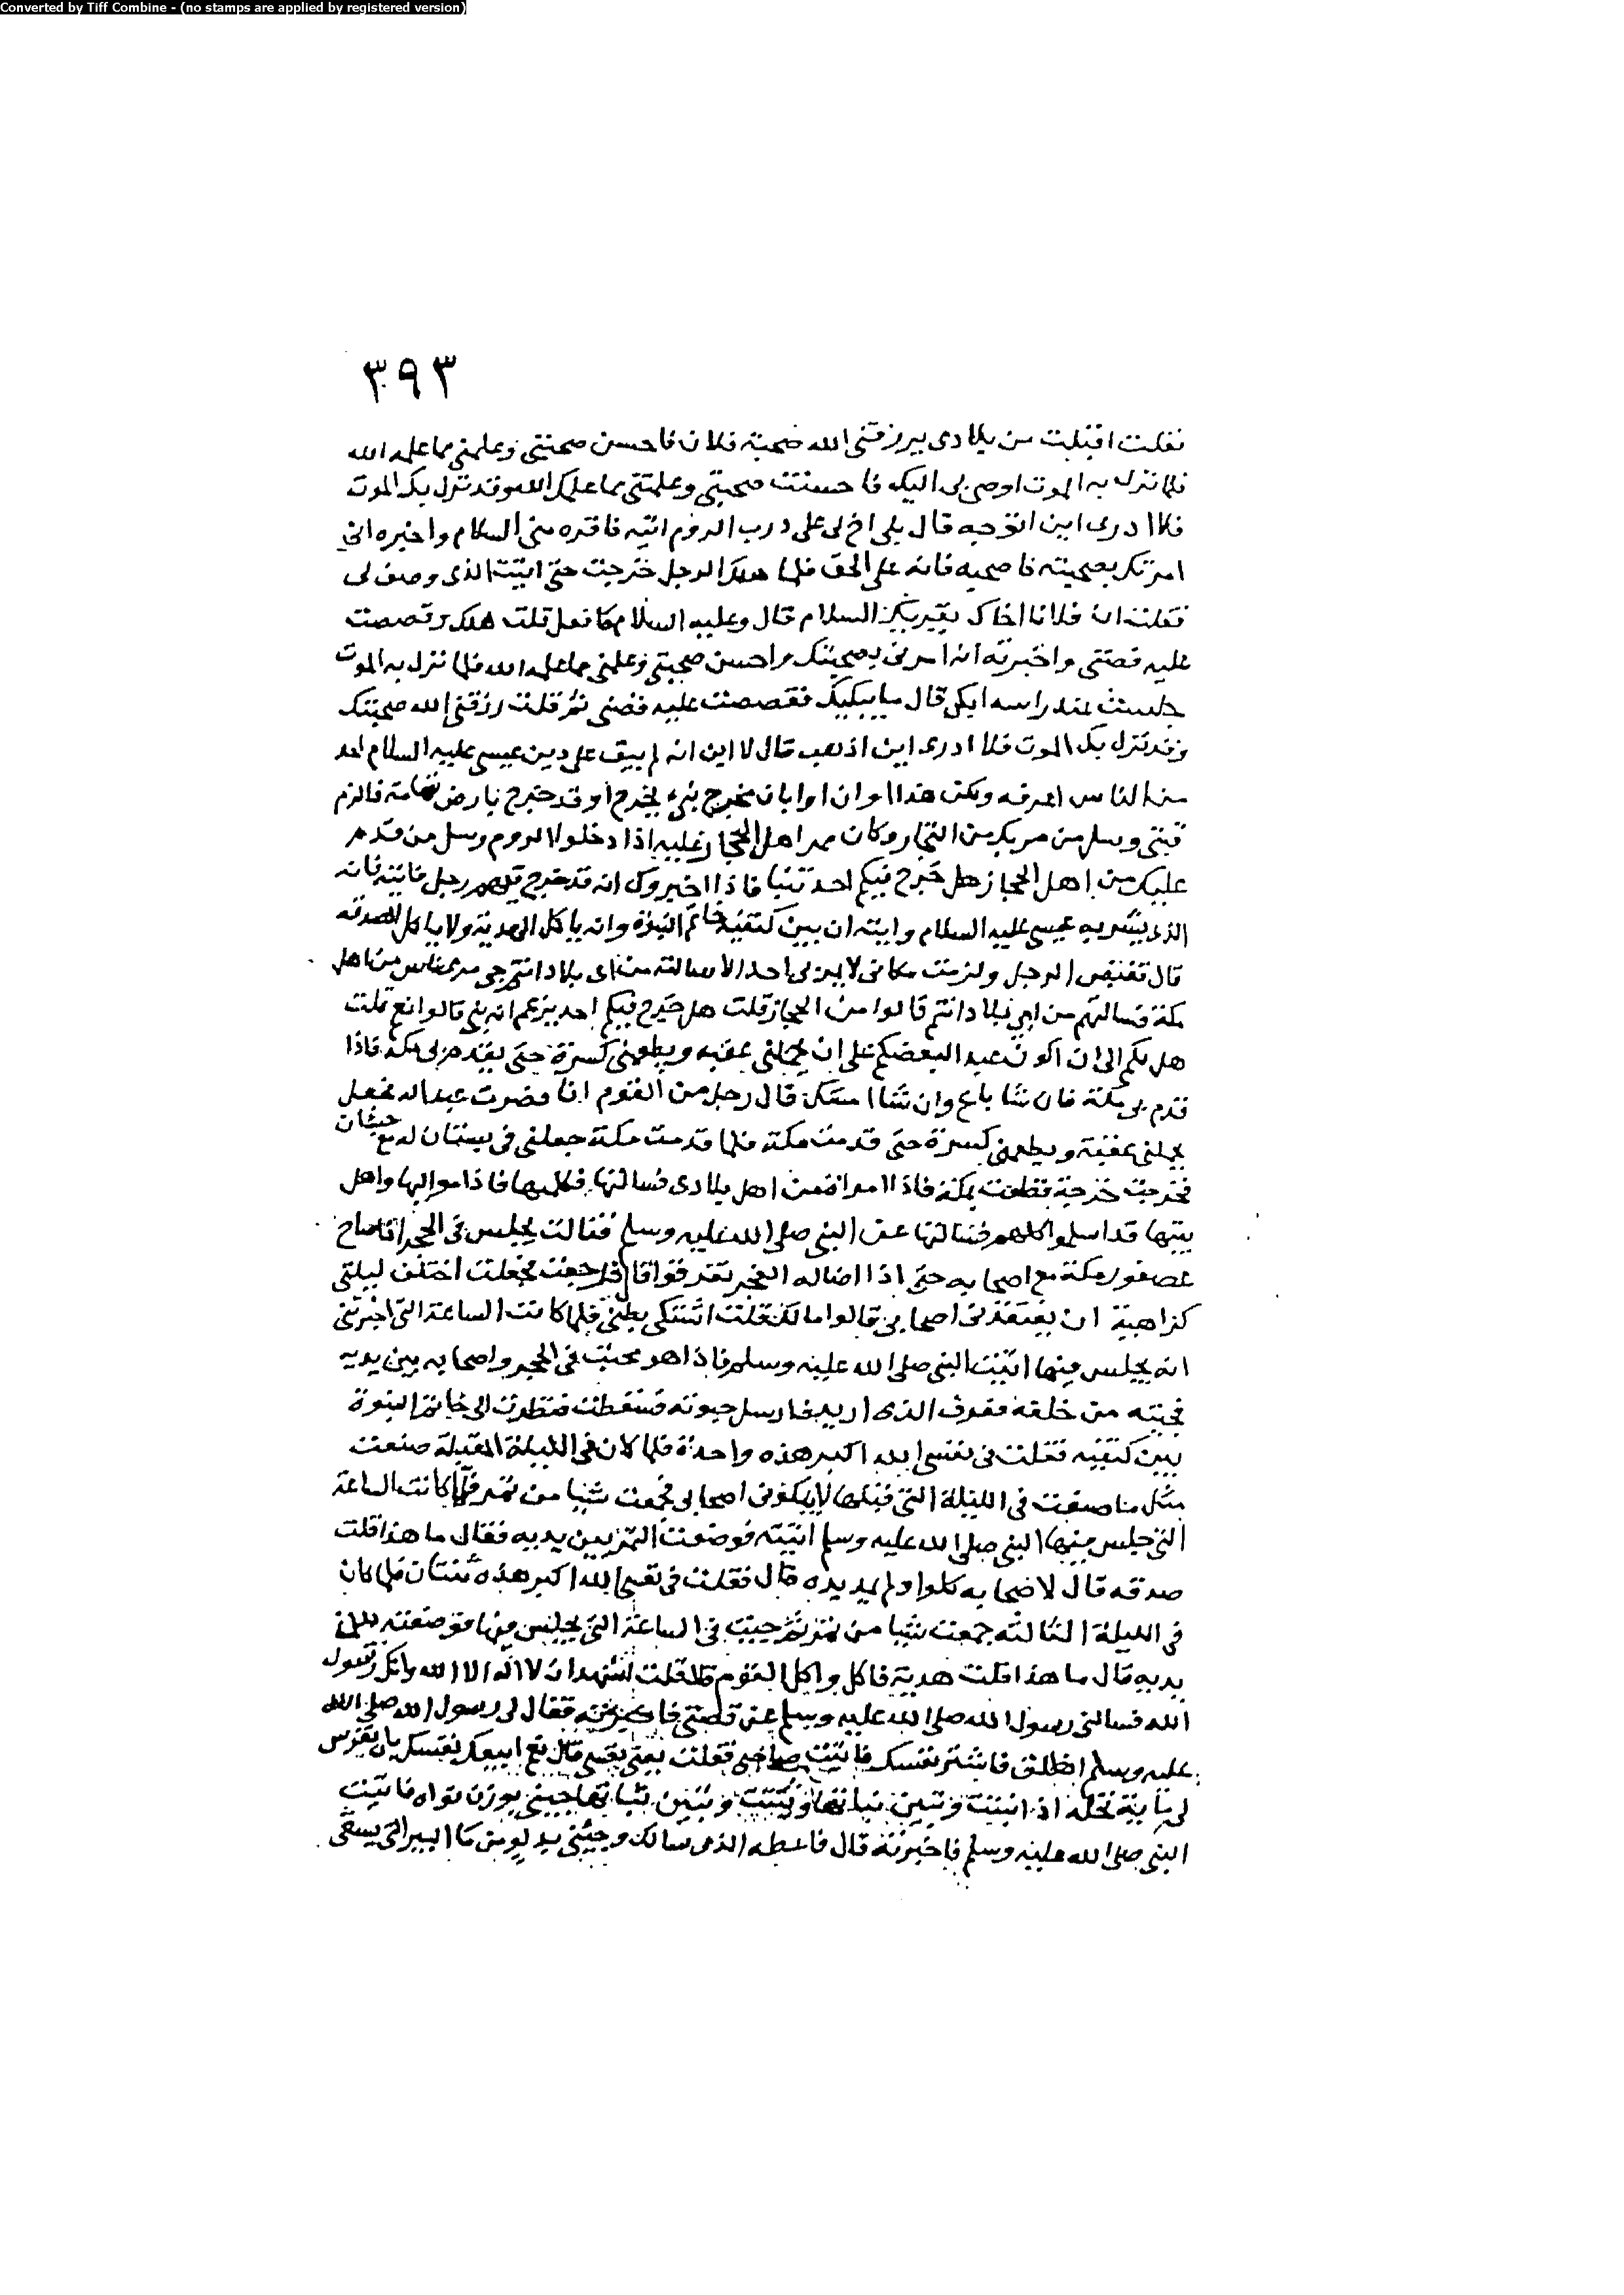 Converted by Tiff Combine - (no stamps are applied by registered version)
٣٩٣
فقلت اقبلت من بلادى يرزقنى الله صحبة فلان فاحسن صحبتى وعلمنى مما علمه الله
فلما نزل به الموت اوصى بى اليك فاحسنت صحبتى وعلمتنى مما علمك الله وقد نزل بك الموت
فلا ادرى اين اتوجه قال بلى اخ لى على درب الروم ائتيه فاقره منى السلام واخبره انى
امرتك بصحبته فاصحبه فانه على الحق فلما هلك الرجل خرجت حتى اتيت الذى وصف لى
فقلت ان فلانا اخاك يقريك السلام قال وعليه السلام ما فعل قلت هلك وقصصت
عليه قصتى واخبرته انه امرنى بصحبتك واحسن صحبتى وعلمنى مما علمه الله فلما نزل به الموت
جلست عند راسه ابكى قال ما يبكيك فقصصت عليه قصتى ثم قلت رزقنى الله صحبتك
وقد نزل بك الموت فلا ادرى اين اذهب قال لا اين انه لم يبق على دين عيسى عليه السلام احد
من الناس اعرفه ولكن هذا اوان او ابان مخرج نبى يخرج او قد خرج بارض تهامة فالزم
قبتى وسل من مر بك من التجار وكان ممر اهل الحجاز عليه اذا دخلوا الروم وسل من قدم
عليك من اهل الحجاز هل خرج فيكم احد تنبا فاذا اخبروك انه قد خرج فيهم رجل فائته فانه
الذى بشر به عيسى عليه السلام وايته ان بين كتفيه خاتم النبوة وانه ياكل الهدية ولا ياكل الصدقه
قال فقبض الرجل ولزمت مكانى لا يمر بى احد الا سالته من اى بلاد انتم حتى مر بى ناس من اهل
مكة فسالتهم من اى بلاد انتم قالوا من الحجاز قلت هل خرج فيكم احد يزعم انه نبى قالوا نعم قلت
هل لكم الى ان اكون عبدا لبعضكم على ان يحملنى عقبه ويطعمنى كسرة حتى يقدم بى مكة فاذا
قدم بى مكة فان شا باع وان شا امسك قال رجل من القوم انا فصرت عبدا له فجعل
يحملنى عقبة ويطعمنى كسرة حتى قدمت مكة فلما قدمت مكة جعلنى فى بستان له مع حبشان
فخرجت خرجة فطفت بمكة فاذا امراة من اهل بلادى فسالتها فكلمتها فاذا مواليها واهل
بيتها قد اسلموا كلهم فسالتها عن النبى صلى الله عليه وسلم فقالت يجلس فى الحجر اذا صاح
عصفور مكة مع اصحابه حتى اذا اضا له الفجر تفرقوا قال فرجعت فجعلت اختلف ليلتى
كراهية ان يفتقدنى اصحابى قالوا مالك فقلت اشتكى بطنى فلما كانت الساعة التى اخبرتنى
انه يجلس فيها اتيت النبى صلى الله عليه وسلم فاذا هو محتب فى الحجر واصحابه بين يديه
فجيته من خلفه فعرف الذى اريد فارسل حبوته فسقطت فنظرت الى خاتم النبوة
بين كتفيه فقلت فى نفسى الله اكبر هذه واحدة فلما كان فى الليلة المقبلة صنعت
مثل ما صنعت فى الليلة التى قبلها لا ينكرنى اصحابى فجمعت شيا من تمر فلما كانت الساعة
التى جلس فيها النبى صلى الله عليه وسلم اتيته فوضعت التمر بين يديه فقال ما هذا قلت
صدقه قال لاصحابه كلوا ولم يمد يده قال فقلت فى نفسى الله اكبر هذه ثنتان فلما كان
فى الليلة الثالثه جمعت شيا من تمر ثم جيت فى الساعة التى يجلس فيها فوضعته بين
يديه قال ما هذا قلت هدية فاكل واكل القوم قال قلت اشهد ان لا اله الا الله وانك رسول
الله فسالنى رسول الله صلى الله عليه وسلم عن قصتى فاخبرته فقال لى رسول الله صلى الله
عليه وسلم انطلق فاشتر نفسك فاتيت صاحبى فقلت بعنى نفسى قال نعم ابيعك نفسك بان تغرس
لى مائة نخلة اذا اثبتت وتبين نباتها جيتنى بوزن نواه فاتيت
النبى صلى الله عليه وسلم فاخبرته قال فاعطه الذى سالك وجيئنى بدلو من ما البير التى يسقى